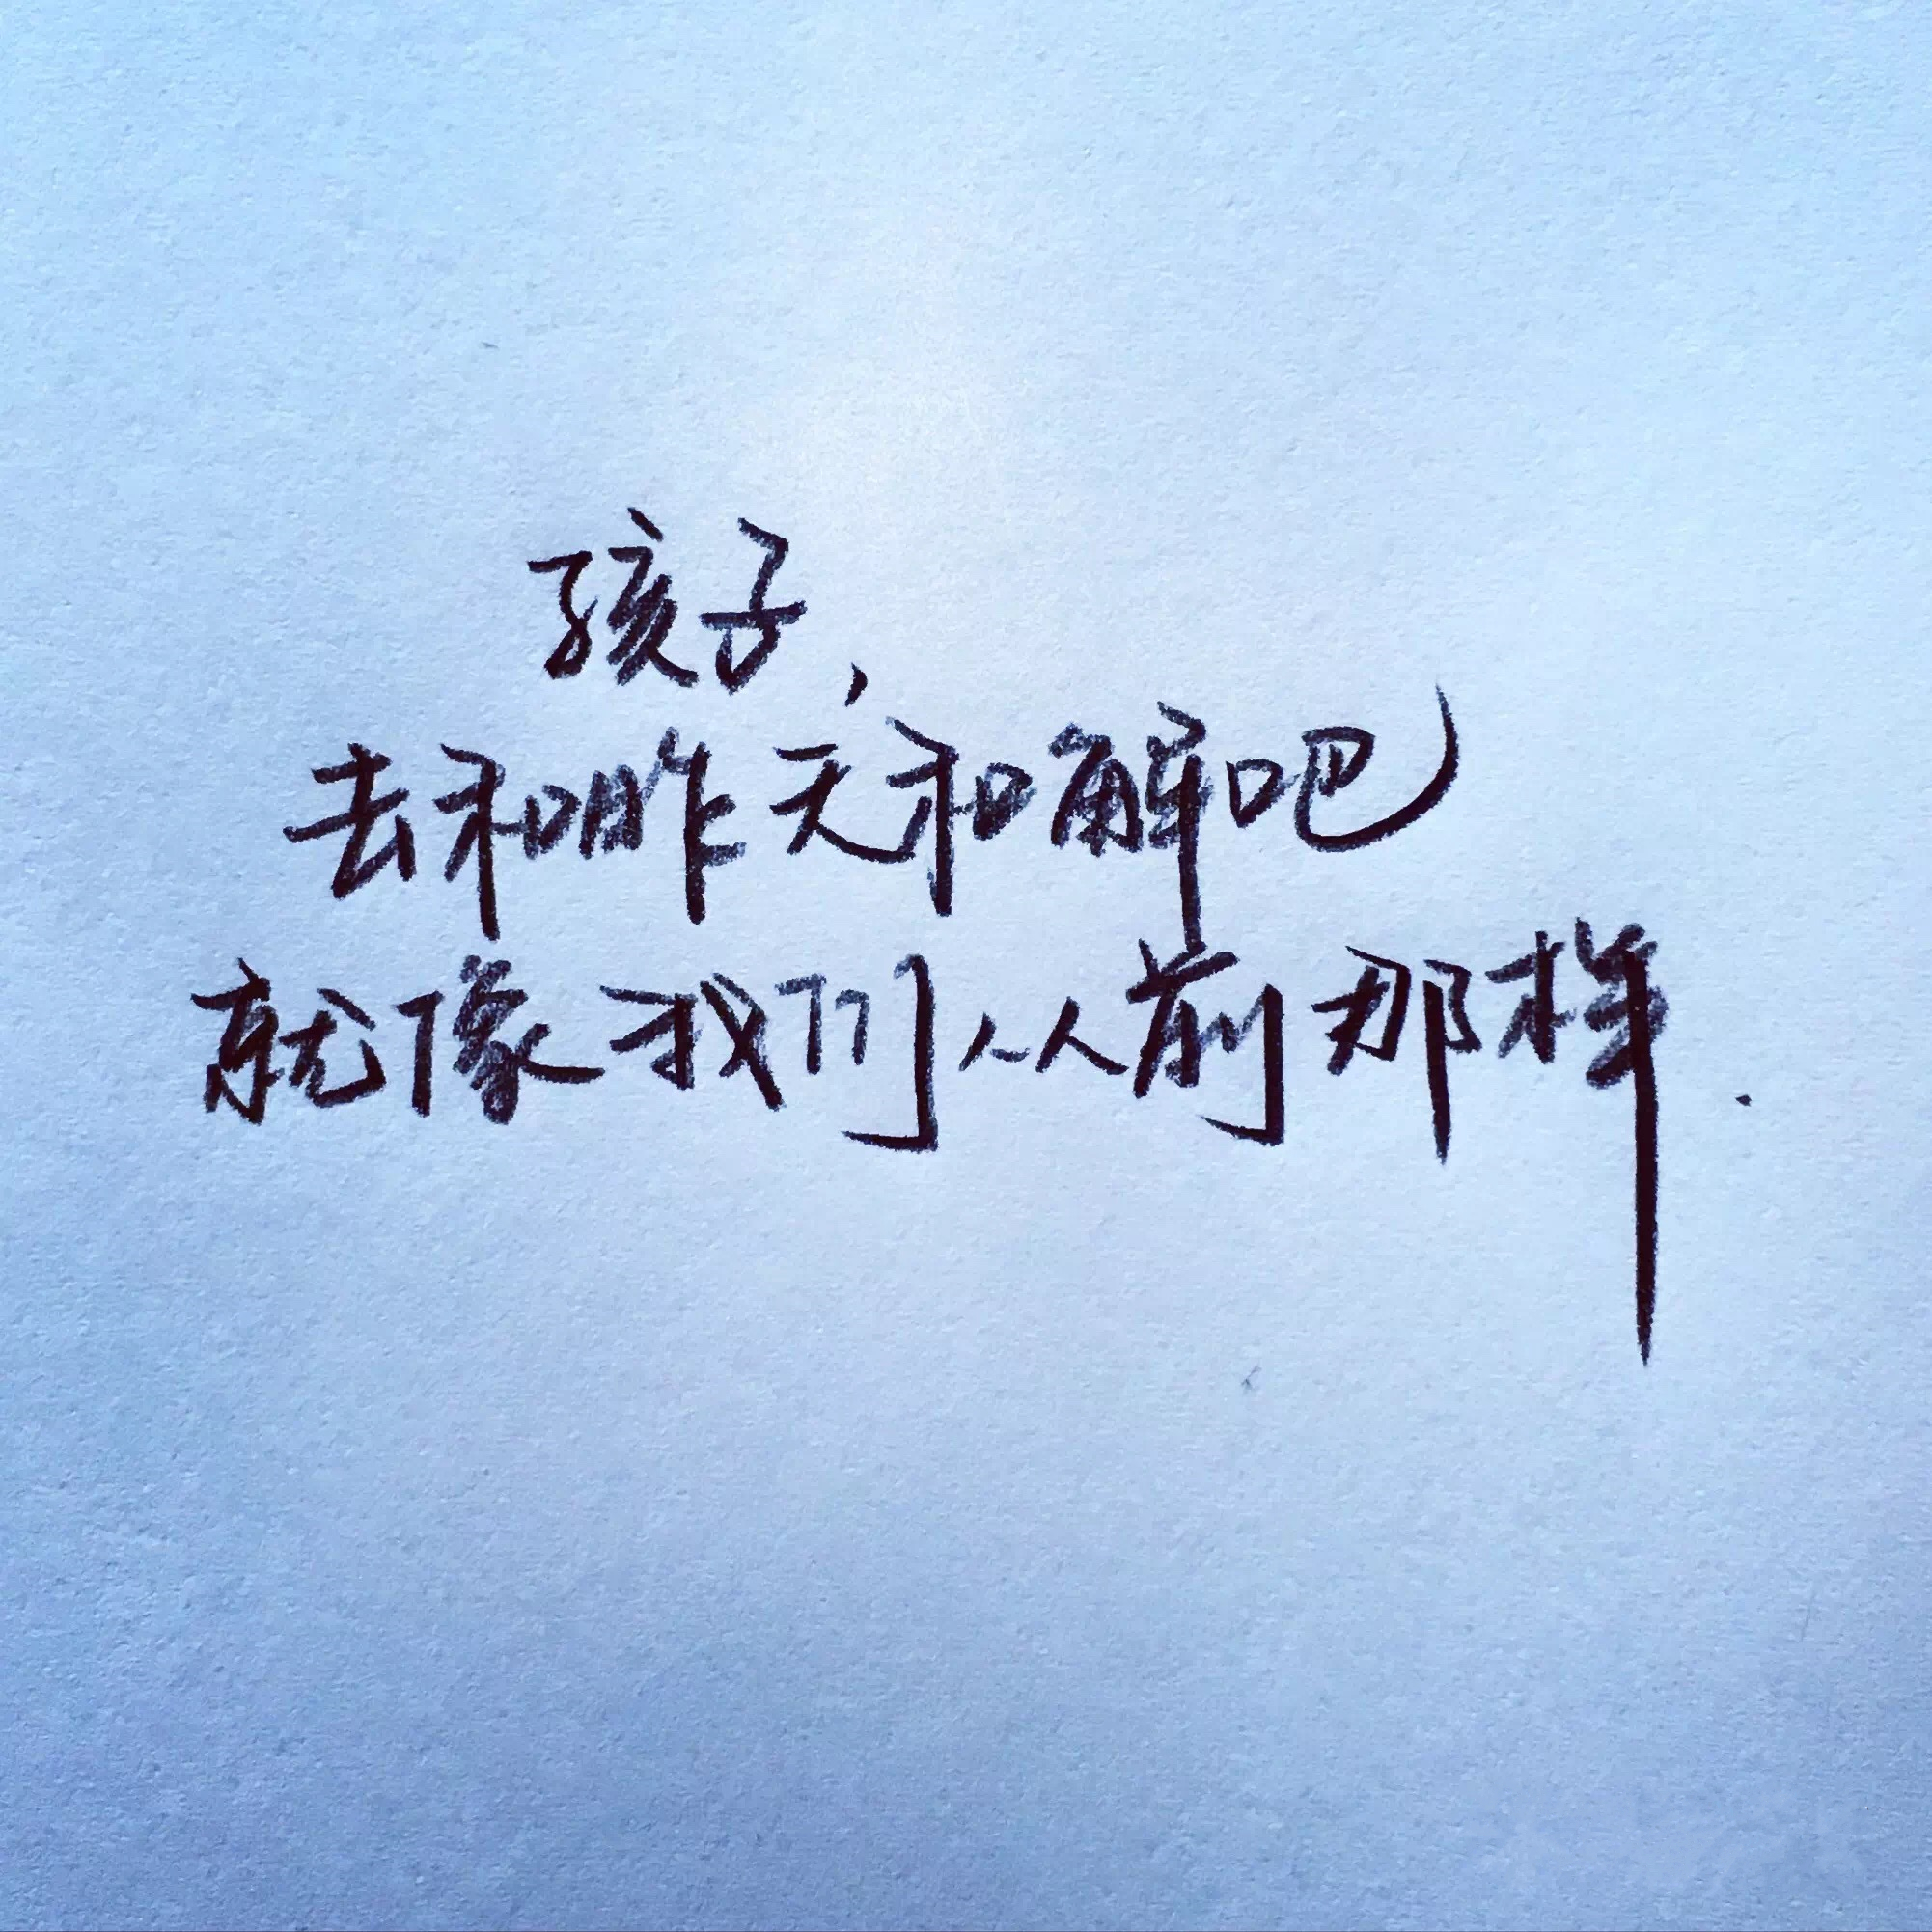 孩子，
去和昨天和解吧
就像我们从前那样.